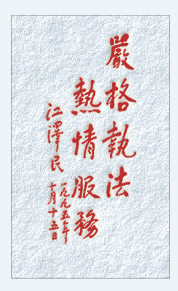 嚴格執法
熱情服務
江澤民
一九九五年
十月十五日